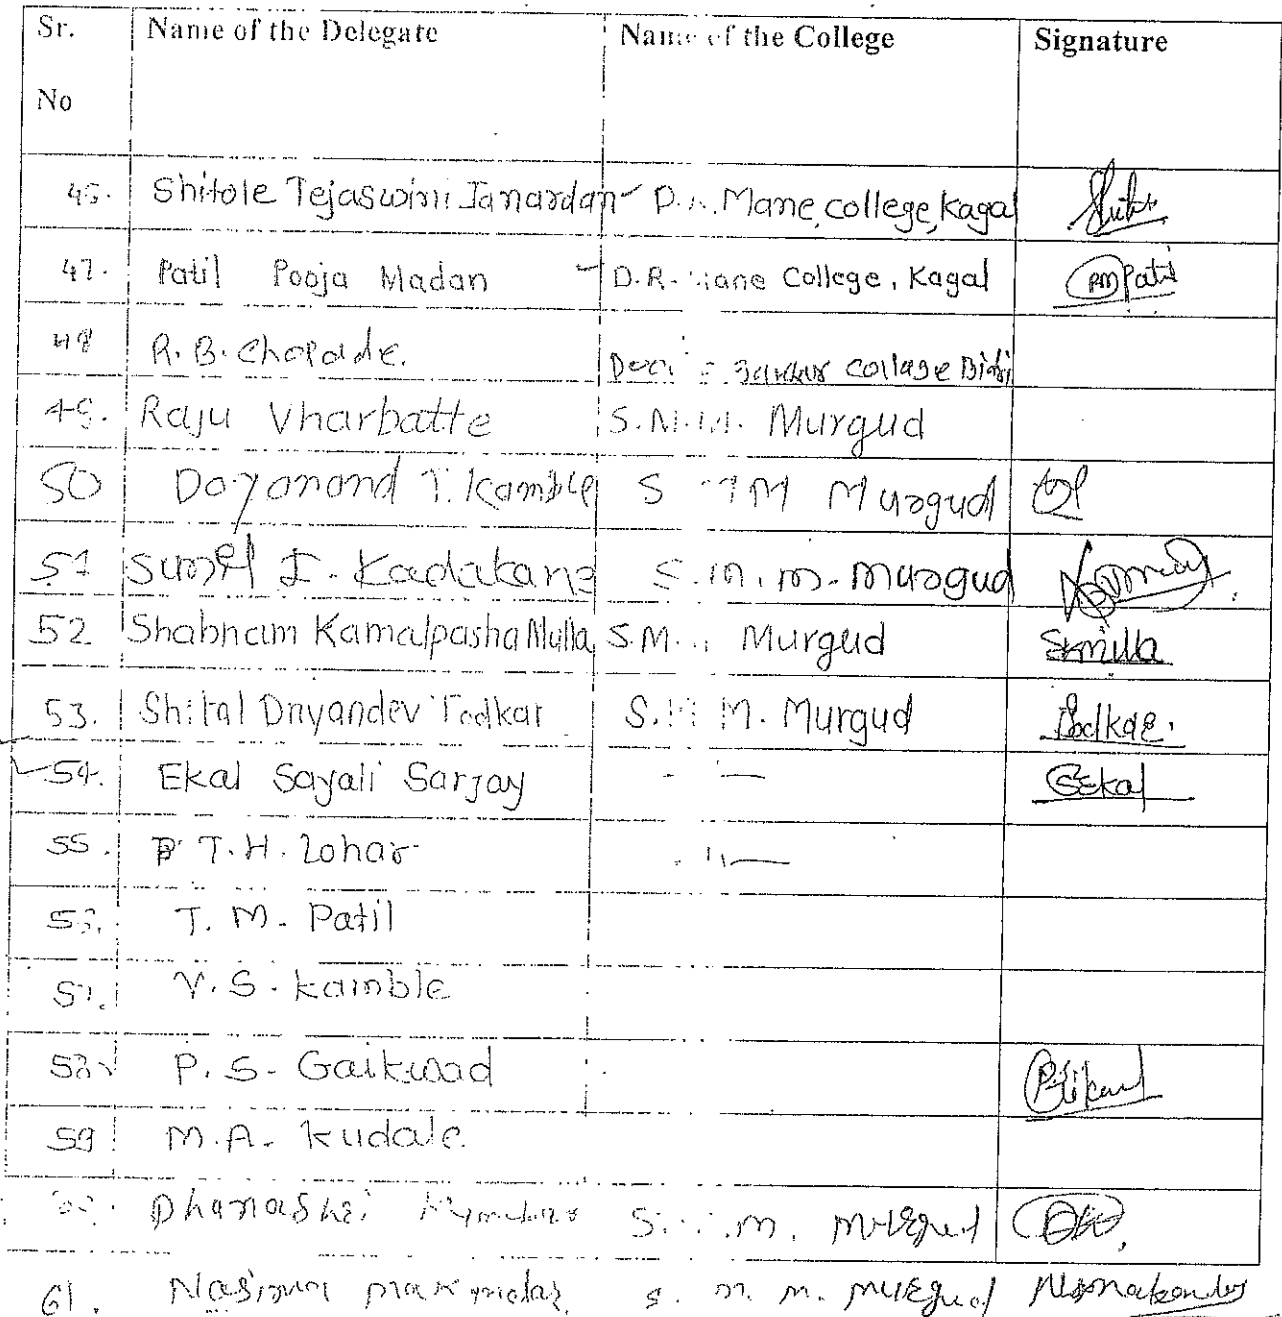 Sr. No Name of the Delegate Name of the College Signature
Shitole Tejaswini Janardan Mane, college, Kagal
47. Patil Pooja Madan D.R. College, Kagal PM Patil
48 R. B. Chopade. College Bidri
49. Raju Vharbatte S.M.M. Murgud
50 Dayanand T. Kamble S M Murgud
51 Sunil I. S.M.M. Murgud
52 Shabnam Kamalpasha Mulla S.M. Murgud Smulla
53. Shital Dnyandev Todkar S. M. Murgud Todkar.
54. Ekal Sayali Sarjay - " - SEkal
55. T.H. Lohar - " -
T. M. Patil
57. V. S. Kamble
58 P. S. Gaikwad
59 M.A. Kudale
Dhanashri S. M. Murgud
61. S. M. M. Murgud